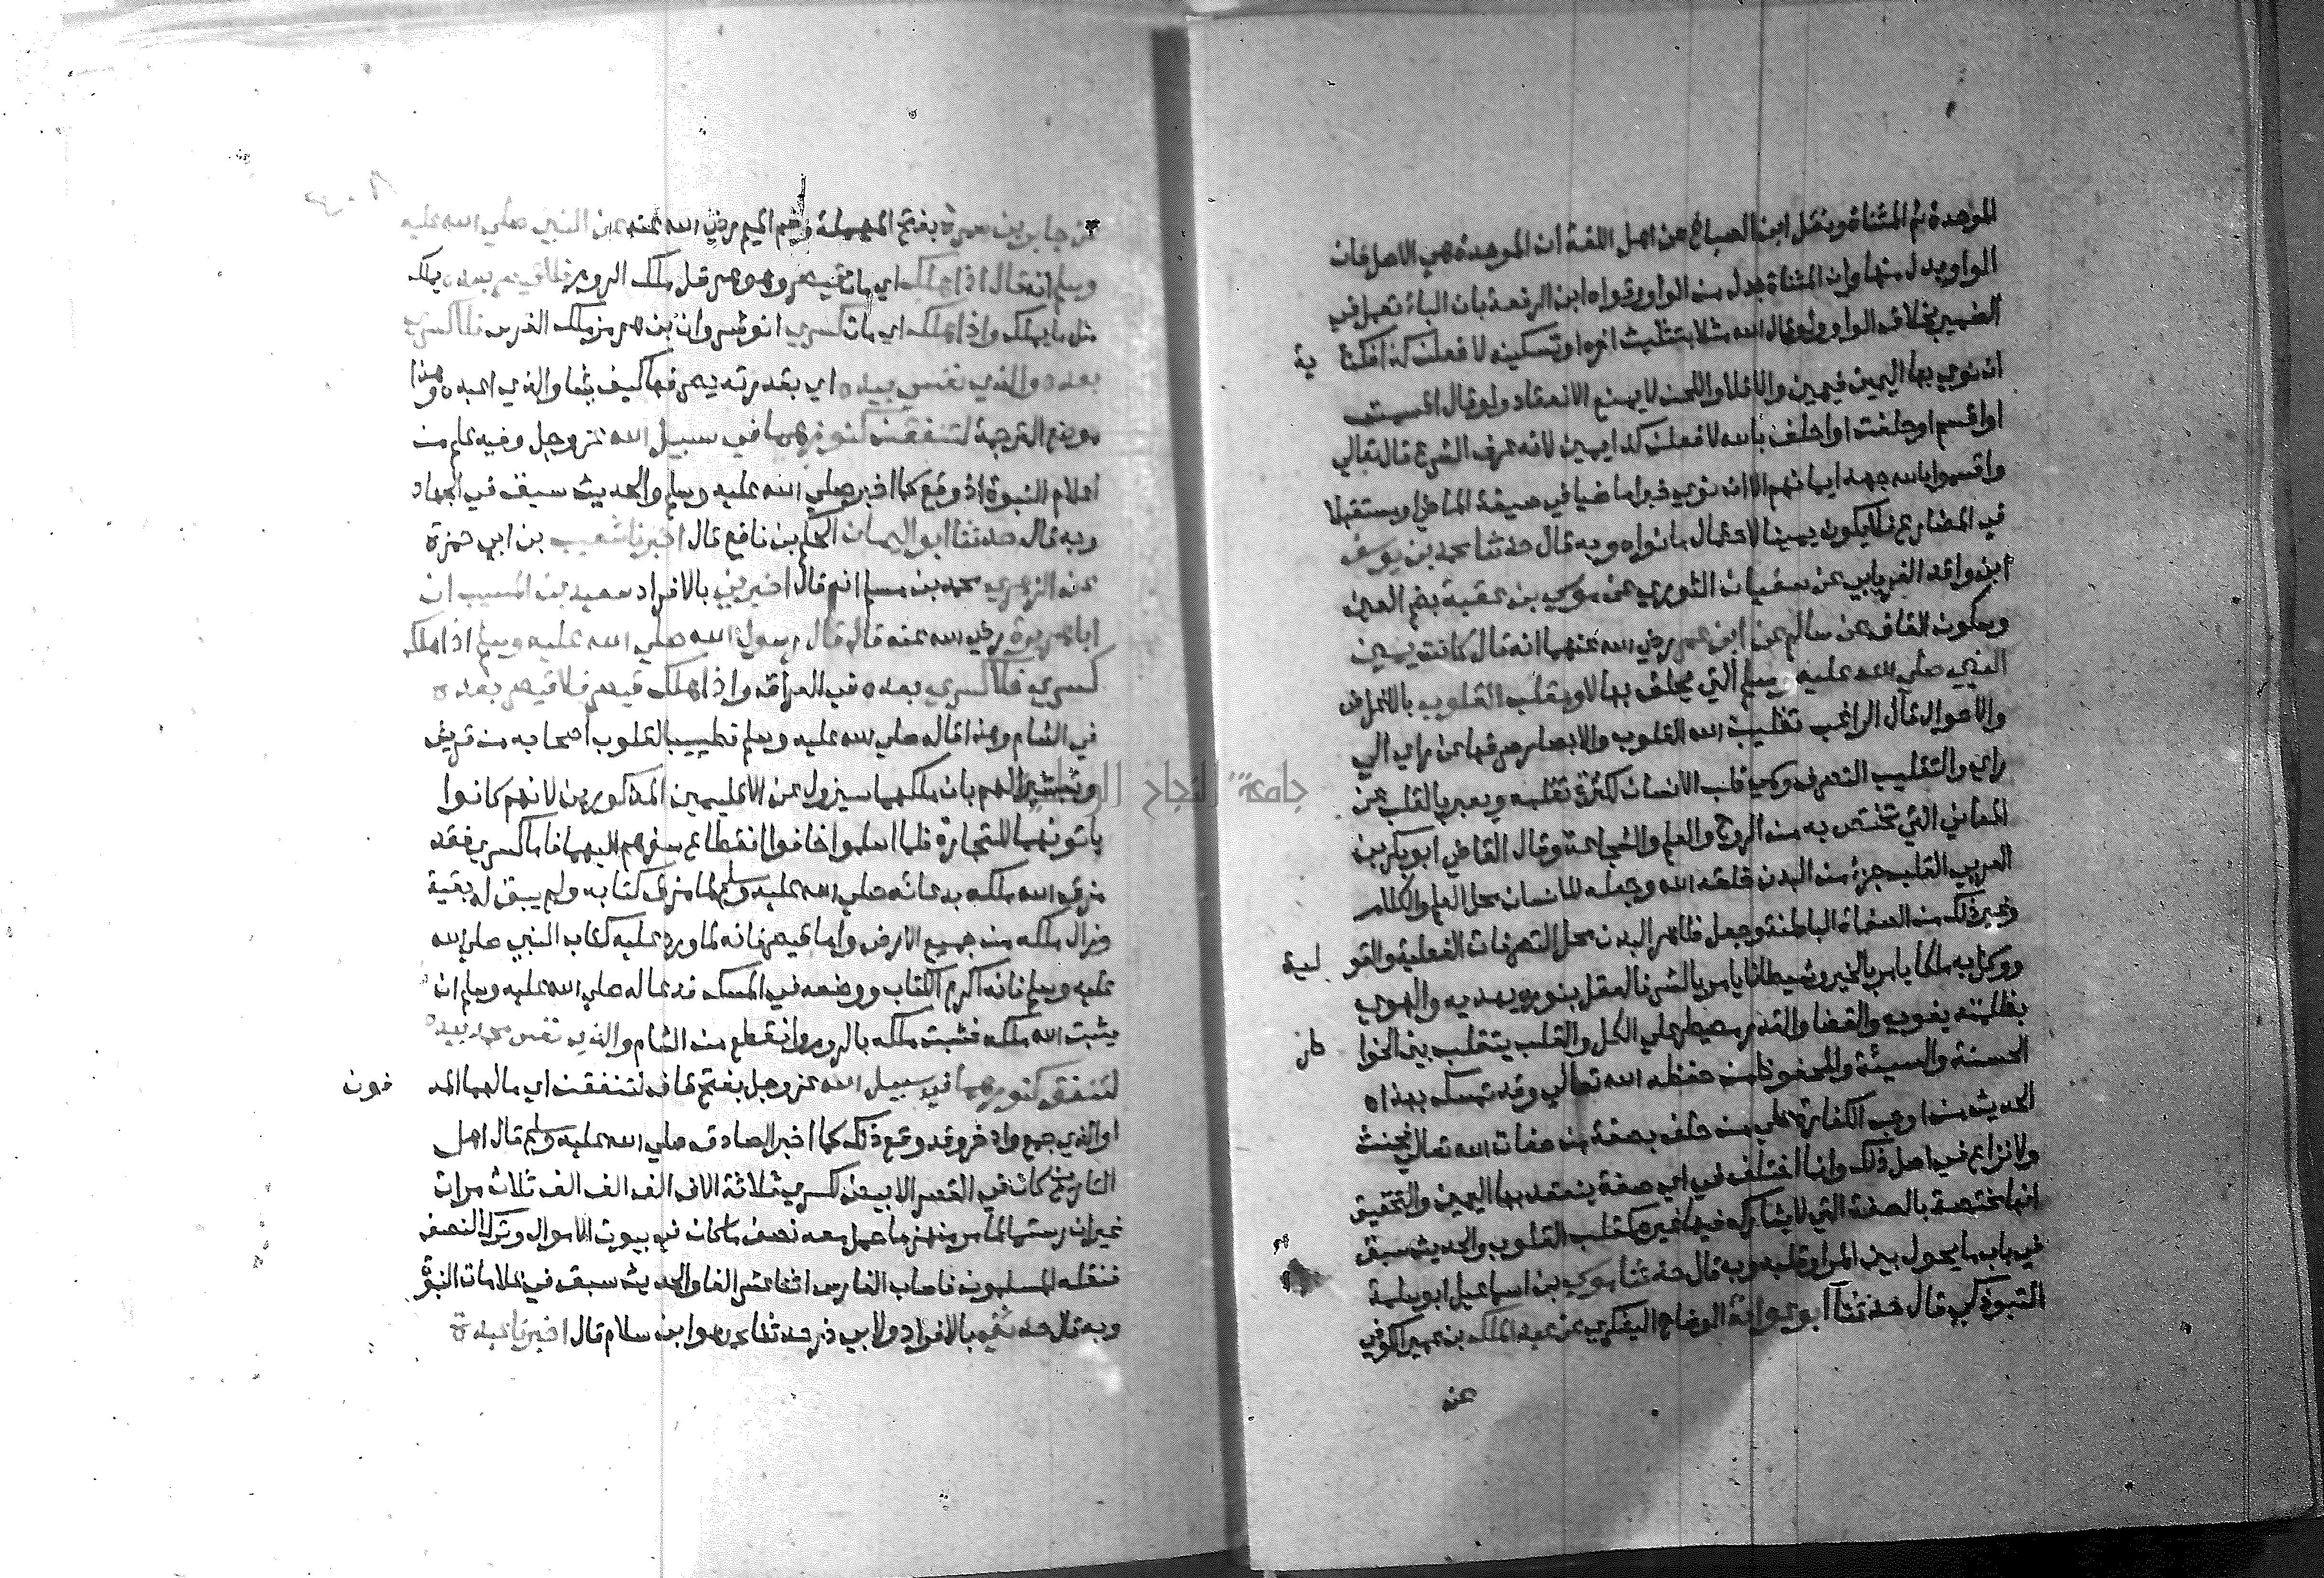 الموحدة ثم المثناة ونقل ابن الصباغ عن اهل اللغة ان الموحدة هي الاصل فان
الواو بدل منها وان المثناة بدل من الواو وقواه ابن الرفعة بان الباء تعمل في
الضمير بخلاف الواو ولو قال الله مثلا بتثليث اخره او تسكينه لافعلن كذا فكناية
ان نوي بها اليمين فيمين والا فلا واللحن لا يمنع الانعقاد ولو قال
او اقسم او حلفت او احلف بالله لافعلن كذا يمين لانه عرف الشرع قال تعالي
واقسموا بالله جهد ايمانهم الا ان نوي خبرا ماضيا في صيغة الماضي او مستقبلا
في المضارع فلا يكون يمينا لاحتمال ما نواه وبه قال حدثنا محمد بن يوسف
ابن واقد الفريابي عن سفيان الثوري عن موسي بن عقبة بضم العين
وسكون القاف عن سالم عن ابن عمر رضي الله عنهما انه قال كانت يمين
النبي صلي الله عليه وسلم التي يحلف بها لا ومقلب القلوب بالاعراض
والاحوال قال الراغب تقليب الله القلوب والابصار صرفها عن راي الي
راي والتقليب التصرف وسمي قلب الانسان لكثرة تقلبه ويعبر بالقلب عن
المعاني التي تختص به من الروح والعلم والشجاعة وقال القاضي ابو بكر بن
العربي القلب جزء من البدن خلقه الله وجعله للانسان محل العلم والكلام
وغير ذلك من الصفات الباطنة وجعل ظاهر البدن محل التصرفات الفعلية والقولية
ووكل به ملكا يامر بالخير وشيطانا يامر بالشر فالعقل بنوره يهديه والهوي
بظلمته يغويه والقضا والقدر مسيطر علي الكل والقلب يتقلب بين الخواطر
الحسنة والسيئة والمحفوظ من حفظه الله تعالي وقد تمسك بهذا
الحديث من اوجب الكفارة علي من حلف بصفة من صفات الله تعالي فحنث
ولا نزاع في اصل ذلك وانما اختلف في اي صفة ينعقد بها اليمين والتحقيق
انها مختصة بالصفة التي لا يشاركه فيها غيره كمقلب القلوب والحديث سبق
في باب ما يحول بين المرء وقلبه وبه قال حدثنا موسي بن اسماعيل ابو سلمة
التبوذكي قال حدثنا ابو عوانة الوضاح اليشكري عن عبد الملك بن عمير الكوفي
عن
عن جابر بن سمرة بفتح المهملة وضم الميم رضي الله عنه عن النبي صلي الله عليه
وسلم انه قال اذا هلك اي مات قيصر وهو هرقل ملك الروم فلا قيصر بعده يملك
مثل ما يملك واذا هلك اي مات كسري انوشروان بن هرمز ملك الفرس فلا كسري
بعده والذي نفسي بيده اي بقدرته يصرفها كيف يشا والذي اعبده وهذا
موضع الترجمة لتنفقن كنوزهما في سبيل الله عز وجل وفيه علم من
اعلام النبوة اذ وقع كما اخبر صلي الله عليه وسلم والحديث سبق في الجهاد
وبه قال حدثنا ابو اليمان الحكم بن نافع قال اخبرنا شعيب بن ابي حمزة
عن الزهري محمد بن مسلم انه قال اخبرني بالافراد سعيد بن المسيب ان
ابا هريرة رضي الله عنه قال قال رسول الله صلي الله عليه وسلم اذا هلك
كسري فلا كسري بعده في العراق واذا هلك قيصر فلا قيصر بعده
في الشام وهذا قاله صلي الله عليه وسلم تطييبا لقلوب اصحابه من قريش
وتبشيرا لهم بان ملكهما سيزول عن الاقليمين المذكورين لانهم كانوا
ياتونهما للتجارة فلما اسلموا خافوا انقطاع سفرهم اليهما فاما كسري فقد
مزق الله ملكه بدعائه صلي الله عليه وسلم لما مزق كتابه ولم يبق له بقية
وزال ملكه من جميع الارض واما قيصر فانه لما ورد عليه كتاب النبي صلي الله
عليه وسلم فانه اكرم الكتاب ووضعه في المسك فدعا له صلي الله عليه وسلم ان
يثبت الله ملكه فثبت ملكه بالروم وانقطع من الشام والذي نفس محمد بيده
لتنفقن كنوزهما في سبيل الله عز وجل بفتح قاف لتنفقن اي مالهما المدفون
او الذي جمع وادخر وقد وقع ذلك كما اخبر الصادق صلي الله عليه وسلم قال اهل
التاريخ كان في القصر الابيض لكسري ثلاثة الاف الف الف الف ثلاث مرات
غير ان رستم لما مر منهزما حمل معه نصف ما كان في بيوت الاموال وترك النصف
فنقله المسلمون فاصاب الفارس اثنا عشر الفا والحديث سبق في علامات النبوة
وبه قال حدثني بالافراد ولابي ذر حدثنا محمد هو ابن سلام قال اخبرنا عبدة
جامعة النجاح